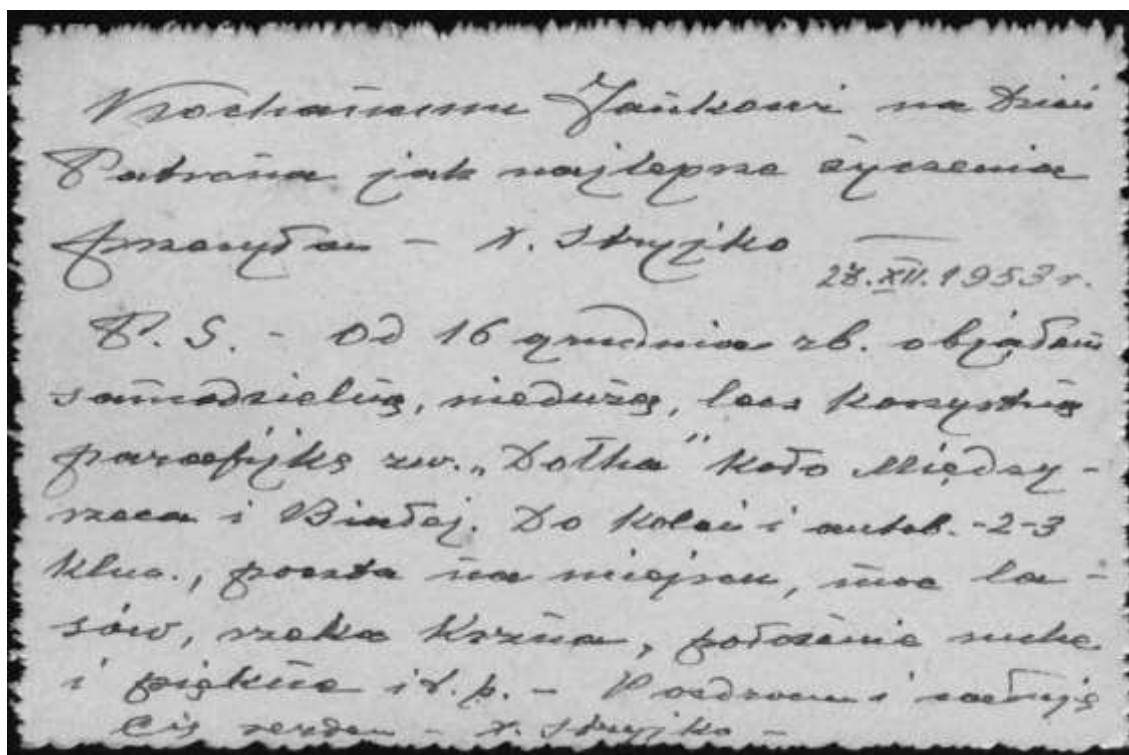 Kochanemu Jankowi na Dzień
Patrona jak najlepsze życzenia
przesyłam – X. Stryjko
27.XII.1953 r.
P. S. – Od 16 grudnia rb. objąłem
samodzielną, niedużą, lecz korzystną
parafijkę zw. „Dołha” koło Między-
rzeca i Białej. Do kolei i autob. -2-3
klm., poczta na miejscu, moc la-
sów, rzeka Krzna, położenie suche
i piękne i t.p. – Pozdrawiam i całuję
Cię – X. Stryjko –